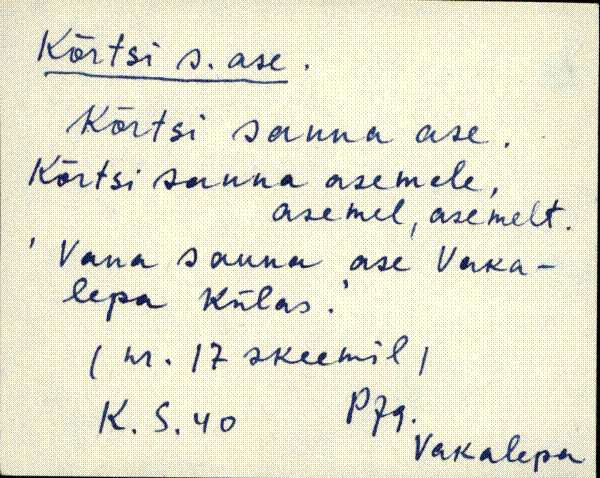 Kõrtsi s. ase.
Kõrtsi sauna ase.
Kõrtsi sauna asemele,
asemel, asemelt.
'Vana sauna ase Vaka-
lepa külas.'
(nr. 17 skeemil)
K. S. 40
Pjg.
Vakalepa